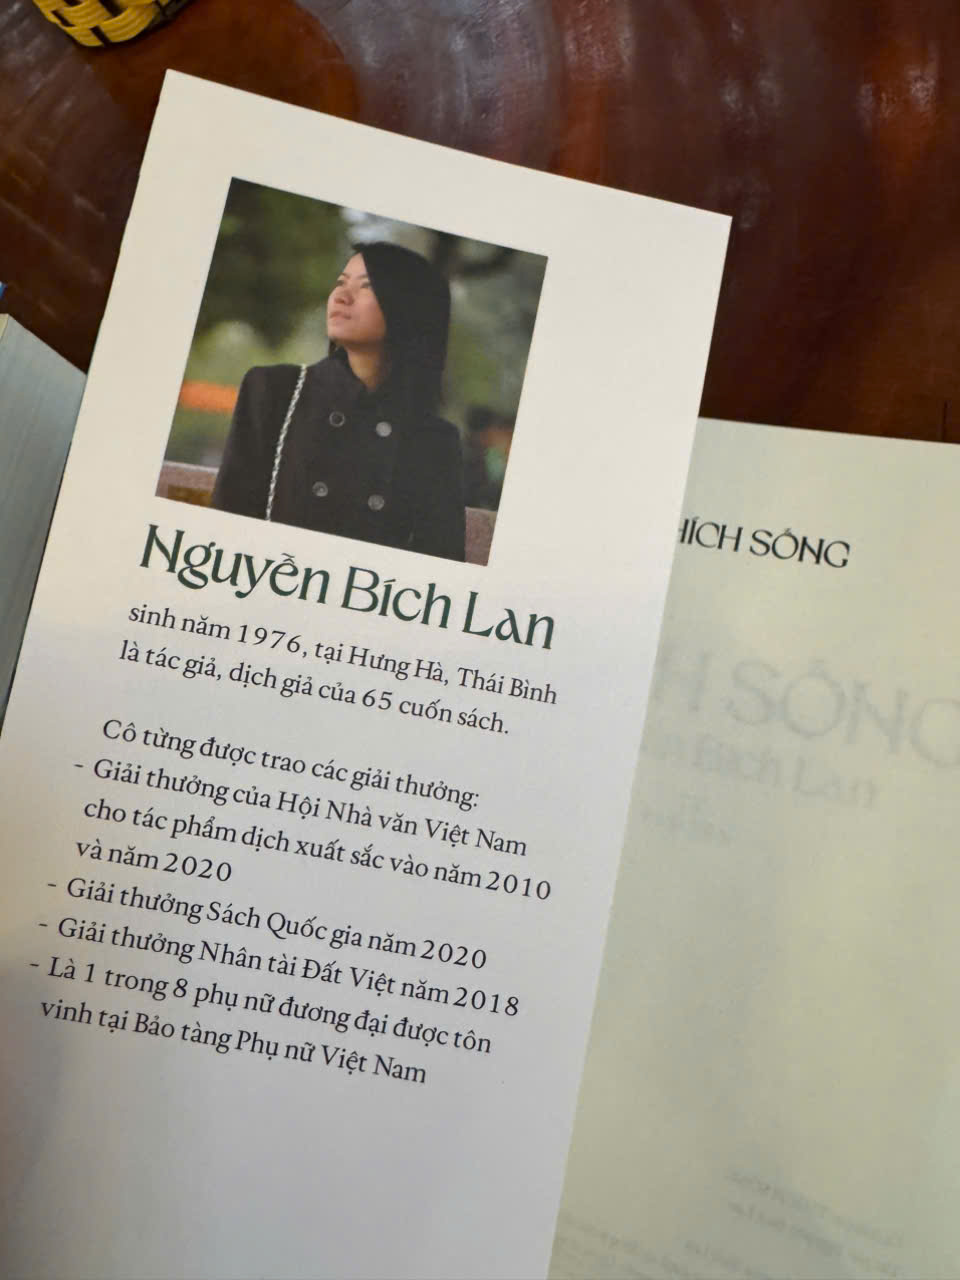 Nguyễn Bích Lan
sinh năm 1976, tại Hưng Hà, Thái Bình
là tác giả, dịch giả của 65 cuốn sách.
Cô từng được trao các giải thưởng:
- Giải thưởng của Hội Nhà văn Việt Nam
cho tác phẩm dịch xuất sắc vào năm 2010
và năm 2020
- Giải thưởng Sách Quốc gia năm 2020
- Giải thưởng Nhân tài Đất Việt năm 2018
- Là 1 trong 8 phụ nữ đương đại được tôn
vinh tại Bảo tàng Phụ nữ Việt Nam
HÍCH SỐNG
H SỐNG
Bích Lan